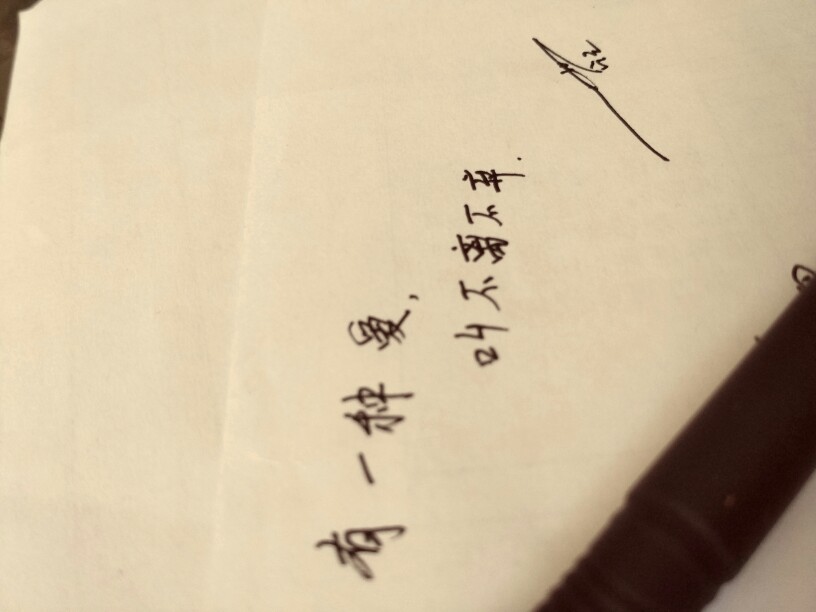 有一种爱,
叫不离不弃.